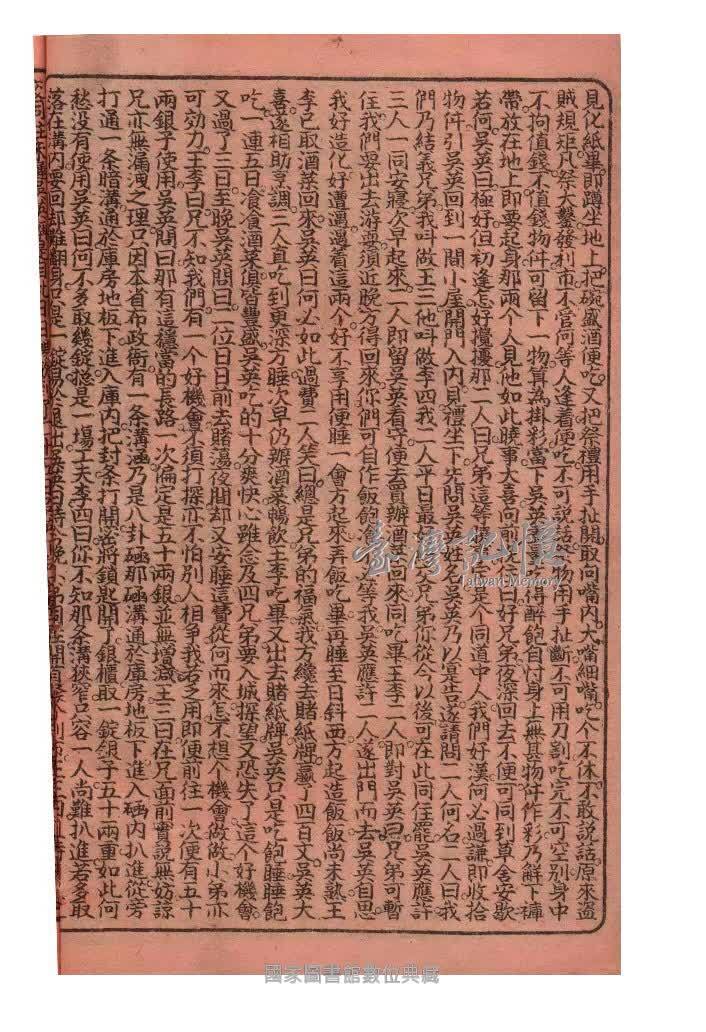 見化紙畢即蹲坐地上把碗盛酒便吃又把祭禮用手扯開取向嘴內大嘴細嘴吃个不休不敢說話原來盜
賊規矩凡祭大鑿發利市不管何等人逢着便吃不可說話祭物用手扯斷不可用刀割吃完不可空別身中
不拘值錢不值錢物件可留下一物算為掛彩當下吳英 得醉飽自忖身上無甚物件作彩乃解下褲
帶放在地上即要起身那兩个人見他如此曉事大喜向前 住曰好兄弟夜深回去不便可同到草舍安歇
若何吳英曰極好但初逢怎好攪擾那二人曰兄弟這等 是个同道中人我們好漢何必過謙即收拾
物件引吳英回到一間小屋開門入內見禮坐下先問吳英姓名吳英乃以寔告遂請問二人何名二人曰我
們乃結義兄弟我叫做王三他叫做李四我二人平日最 交兄弟你從今以後可在此同住罷吳英應許
三人一同安寢次早起來二人即留吳英看守便去買辦酒菜回來同吃畢王李二人即對吳英曰兄弟可暫
住我們要出去游耍須近晚方得回來你們可自作飯飽 必等我吳英應許二人遂出門而去吳英自思
我好造化好遭遇遇着這兩个好不享用便睡一會方起來弄飯吃畢再睡至日斜西方起造飯飯尚未熟王
李已取酒菜回來吳英曰何必如此過費二人笑曰總是兄弟的福氣我方纔去賭紙牌贏了四百文吳英大
喜遂相助烹調三人直吃到更深方睡次早仍辦酒菜暢飲王李吃畢又出去賭紙牌吳英只是吃飽睡睡飽
吃一連五日飡飡酒菜俱皆豐盛吳英吃的十分爽快心雖念及四兄弟要入城探望又恐失了這个好機會
又過了三日至晚吳英問曰二位日日前去賭蕩夜間却又安睡這費從何而來怎不想个機會做做小弟亦
可効力王李曰兄不知我們有一个好機會不須打探亦不怕別人相爭我若乏用即便前往一次便有五十
兩銀子使用吳英問曰那有這穩當的長路一次偏定是五十兩銀並無增減王三曰在兄面前實說無妨諒
兄亦無漏洩之理只因本省布政衙有一条溝涵乃是八卦磘那磘溝通於庫房地板下進入磘內扒進從旁
打通一条暗溝通於庫房地板下進入庫內把封条打開密將鎖匙開了銀櫃取一錠銀子五十兩重如此何
愁没有使用吳英曰何不多取幾錠摠是一塲工夫李四曰你不知那条溝狹窄只容一人尚難扒進若多取
落在溝內要回却難翻身只是一錠易於退出吳英曰